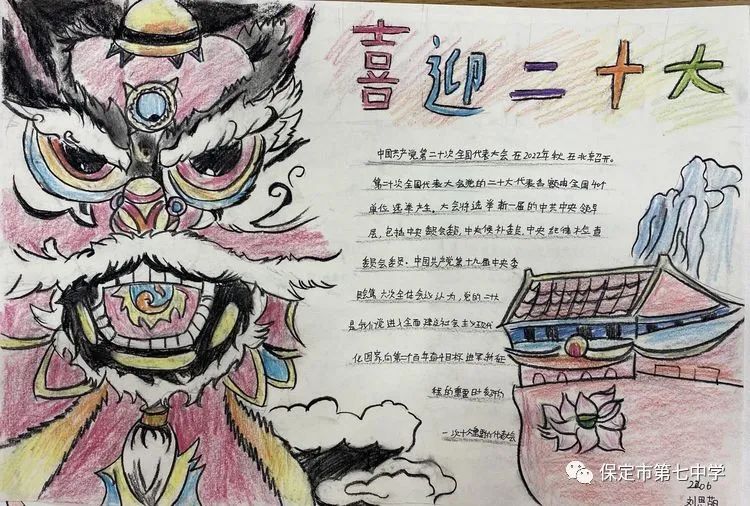 喜迎二十大
中国共产党第二十次全国代表大会在2022年秋在北京召开。
第二十次全国代表大会党的二十大代表名额由全国个
单位选举产生。大会将选举新一届的中共中央领导
层,包括中央委员会委员,中央候补委员,中央纪律检查
委员会委员。中国共产党第十九届中央委
员会第六次全体会议认为,党的二十大
是我们党进入全面建设社会主义现代
化国家,向第二个百年奋斗目标进军新征
程的重要时刻
一次十分重要的代表大会
刘思
保定市第七中学